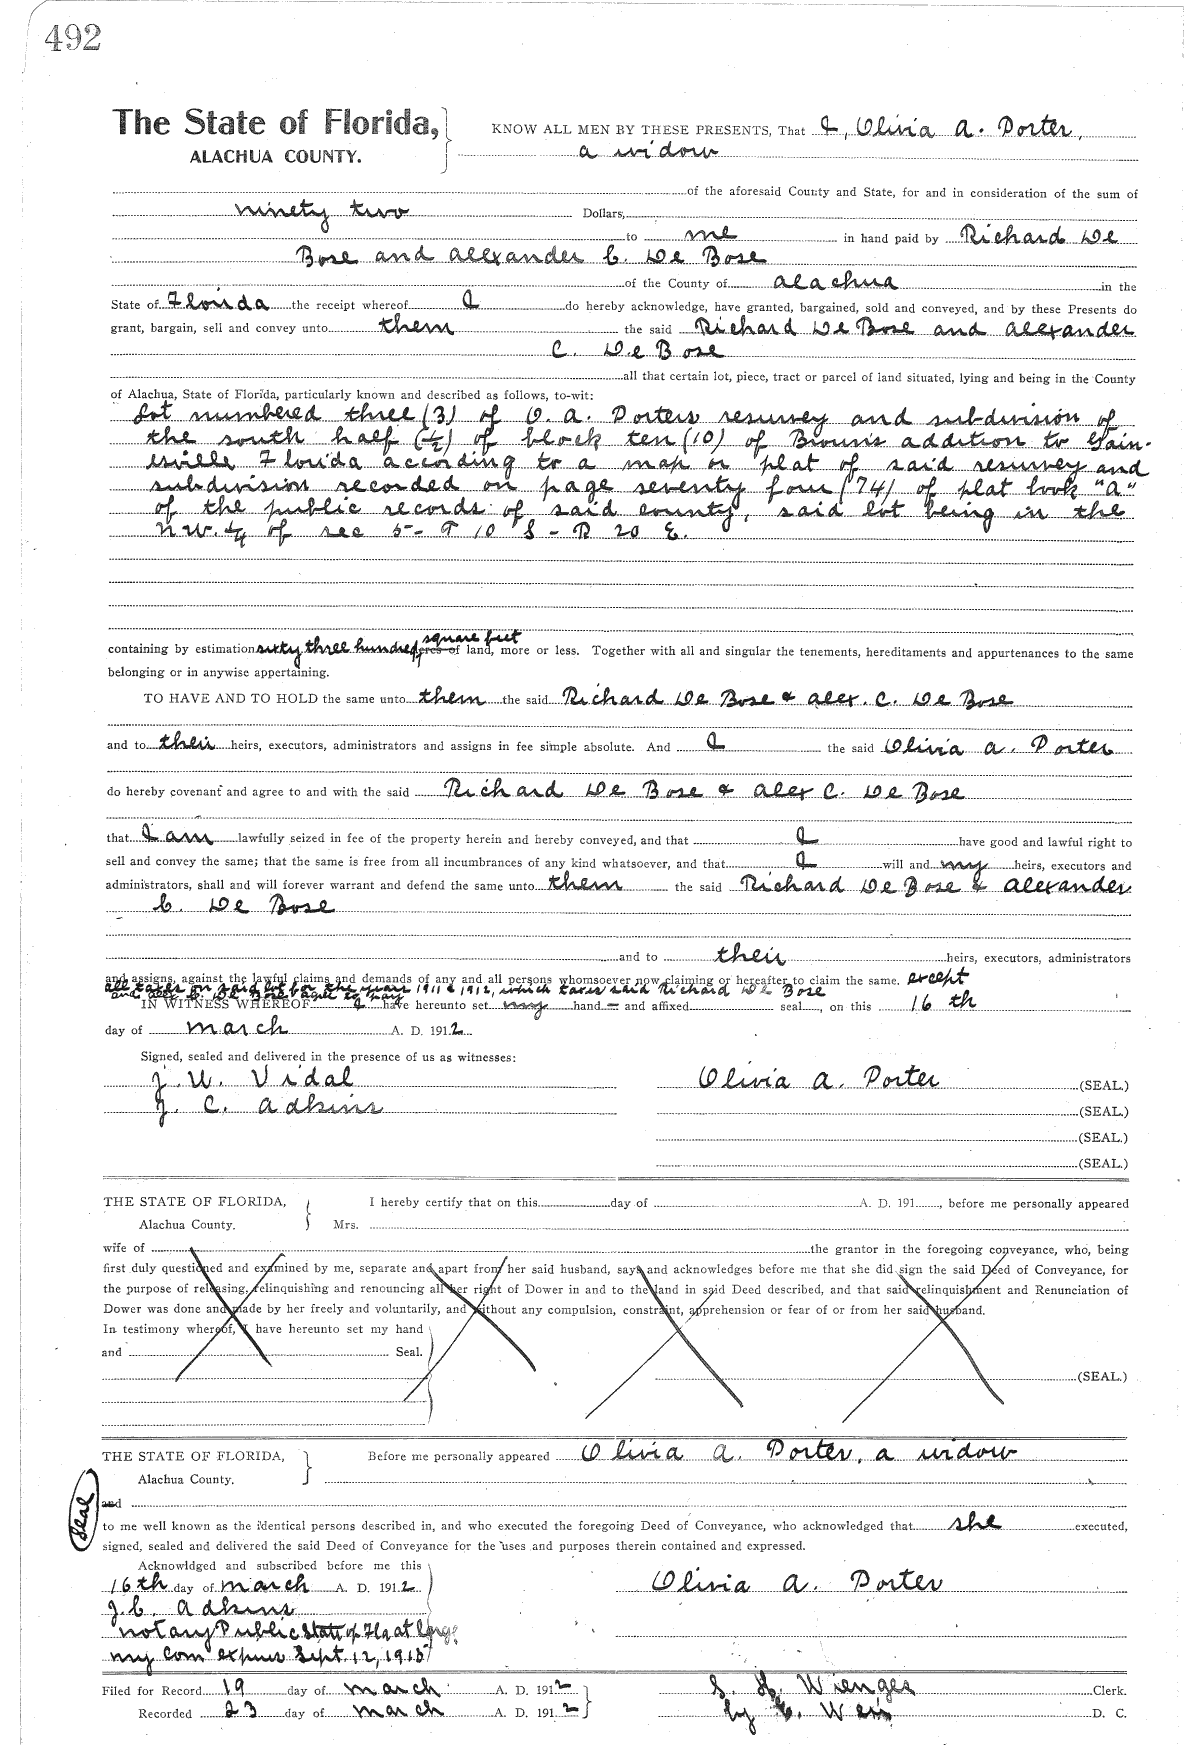 492
The State of Florida, KNOW ALL MEN BY THESE PRESENTS, That I, Olivia A. Porter,
ALACHUA COUNTY. a widow
of the aforesaid County and State, for and in consideration of the sum of
ninety two Dollars,
to me in hand paid by Richard De
Bose and Alexander C. De Bose
of the County of Alachua in the
State of Florida the receipt whereof I do hereby acknowledge, have granted, bargained, sold and conveyed, and by these Presents do
grant, bargain, sell and convey unto them the said Richard De Bose and Alexander
C. De Bose
all that certain lot, piece, tract or parcel of land situated, lying and being in the County
of Alachua, State of Florida, particularly known and described as follows, to-wit:
Lot numbered three (3) of O. A. Porters resurvey and subdivision of
the south half (1/2) of block ten (10) of Brown's addition to Gain-
esville Florida according to a map or plat of said resurvey and
subdivision recorded on page seventy four (74) of plat book "A"
of the public records of said county, said lot being in the
N.W. 1/4 of sec 5 - T 10 S - R 20 E.
square feet
containing by estimation sixty three hundred acres of land, more or less. Together with all and singular the tenements, hereditaments and appurtenances to the same
belonging or in anywise appertaining.
TO HAVE AND TO HOLD the same unto them the said Richard De Bose & Alex. C. De Bose
and to their heirs, executors, administrators and assigns in fee simple absolute. And I the said Olivia A. Porter
do hereby covenant and agree to and with the said Richard De Bose & Alex C. De Bose
that I am lawfully seized in fee of the property herein and hereby conveyed, and that I have good and lawful right to
sell and convey the same; that the same is free from all incumbrances of any kind whatsoever, and that I will and my heirs, executors and
administrators, shall and will forever warrant and defend the same unto them the said Richard De Bose & Alexander
C. De Bose
and to their heirs, executors, administrators
and assigns, against the lawful claims and demands of any and all persons whomsoever now claiming or hereafter to claim the same. except
all taxes on said lot for the years 1911 & 1912, which taxes said Richard De Bose
and Alex C. De Bose agree to pay
IN WITNESS WHEREOF I have hereunto set my hand and affixed seal, on this 16 th
day of March A. D. 1912
Signed, sealed and delivered in the presence of us as witnesses:
J. W. Vidal Olivia A. Porter (SEAL.)
J. C. Adkins (SEAL.)
(SEAL.)
(SEAL.)
THE STATE OF FLORIDA, I hereby certify that on this day of A. D. 191 , before me personally appeared
Alachua County. Mrs.
wife of the grantor in the foregoing conveyance, who, being
first duly questioned and examined by me, separate and apart from her said husband, says and acknowledges before me that she did sign the said Deed of Conveyance, for
the purpose of releasing, relinquishing and renouncing all her right of Dower in and to the land in said Deed described, and that said relinquishment and Renunciation of
Dower was done and made by her freely and voluntarily, and without any compulsion, constraint, apprehension or fear of or from her said husband.
In testimony whereof, I have hereunto set my hand
and Seal.
(SEAL.)
THE STATE OF FLORIDA, Before me personally appeared Olivia A. Porter, a widow
Alachua County.
and
Seal
to me well known as the identical persons described in, and who executed the foregoing Deed of Conveyance, who acknowledged that she executed,
signed, sealed and delivered the said Deed of Conveyance for the uses and purposes therein contained and expressed.
Acknowldged and subscribed before me this
16th day of March A. D. 1912 Olivia A. Porter
J. C. Adkins
Notary Public State of Fla at Large
My Com expires Sept. 12, 1915
Filed for Record 19 day of March A. D. 1912 S. H. Wienges Clerk.
Recorded 23 day of March A. D. 1912 by D. C.